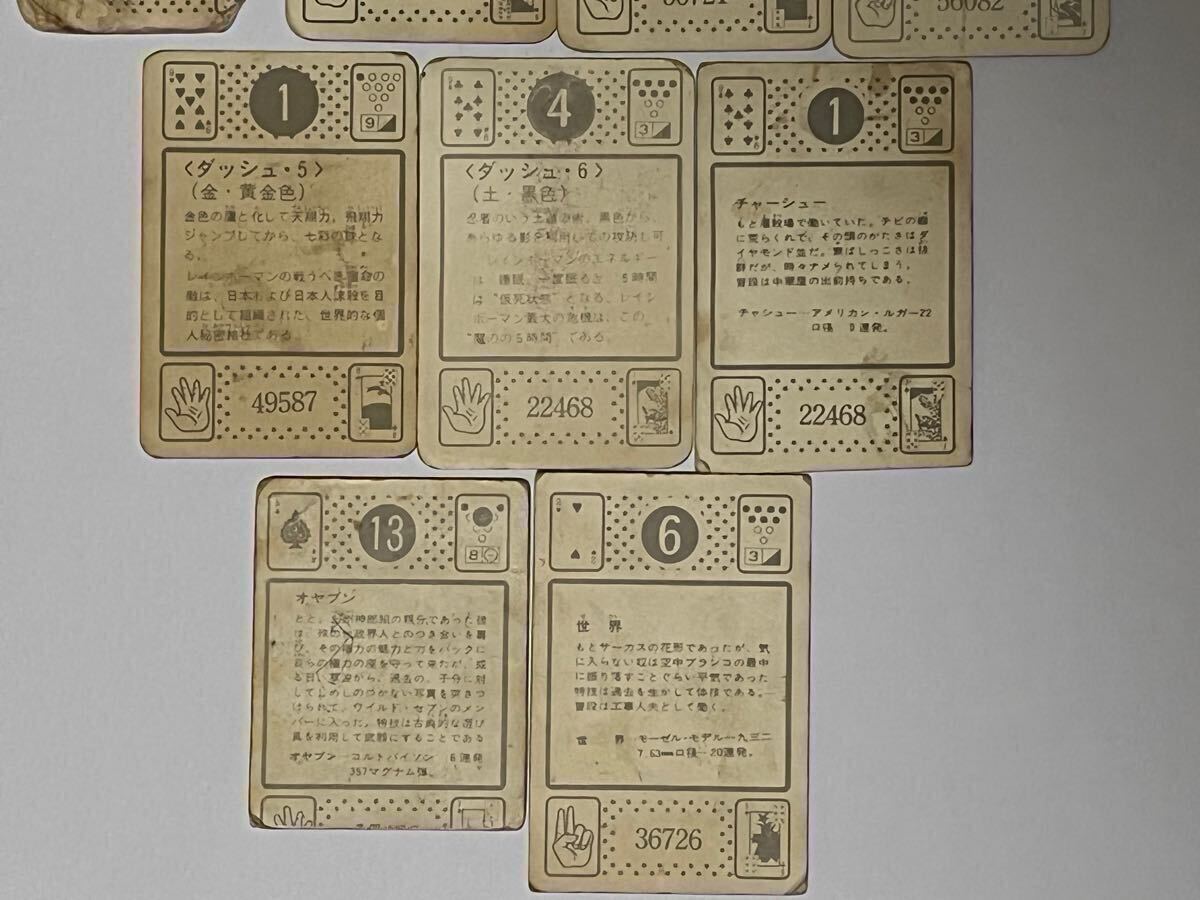 56082
1
9
〈ダッシュ・5〉
(金・黄金色)
金色の鷹と化して天翔力、飛翔力
ジャンプしてから、七彩の珠とな
る。
レインボーマンの戦うべき宿命の
敵は、日本および日本人抹殺を目
的として組織された、世界的な個
人秘密結社である。
49587
4
3
〈ダッシュ・6〉
(土・黒色)
忍者のいう土遁の術、黒色から、
あらゆる影を利用しての攻防し可
レインボーマンのエネルギー
は 睡眠。一度眠ると 5時間
は“仮死状態”となる。レイン
ボーマン最大の危機は、この
“魔のの5時間”である。
22468
1
3
チャーシュー
もと屠殺場で働いていた。チビの癖
に荒らくれで、その頭のかたさはダ
イヤモンド並だ。業ばしっこさは抜
群だが、時々ナメられてしまう。
普段は中華屋の出前持ちである。
チャシュー—アメリカン・ルガー22
口径 9連発。
22468
13
8
オヤブン
もと、
神郎組の親分であった彼
は、
政界人とのつき合いを
び、その権力の魅力と力をバックに
自らの権力の座を守って来たが、或
る日、草波から、過去の、子分に対
してしめしのつかない写真を突きつ
けられて、ワイルド・セブンのメン
バーに入った。特技は古典的な遊び
具を利用して武器にすることである
オヤブン—コルトパイソン 6連発
357マグナム弾。
6
3
世界
もとサーカスの花形であったが、気
に入らない奴は空中ブランコの最中
に振り落すことぐらい平気であった
特技は過去を生かして体技である。
普段は工事人夫として働く。
世界 モーゼル・モデル一九三二
7.63mm口径—20連発。
36726